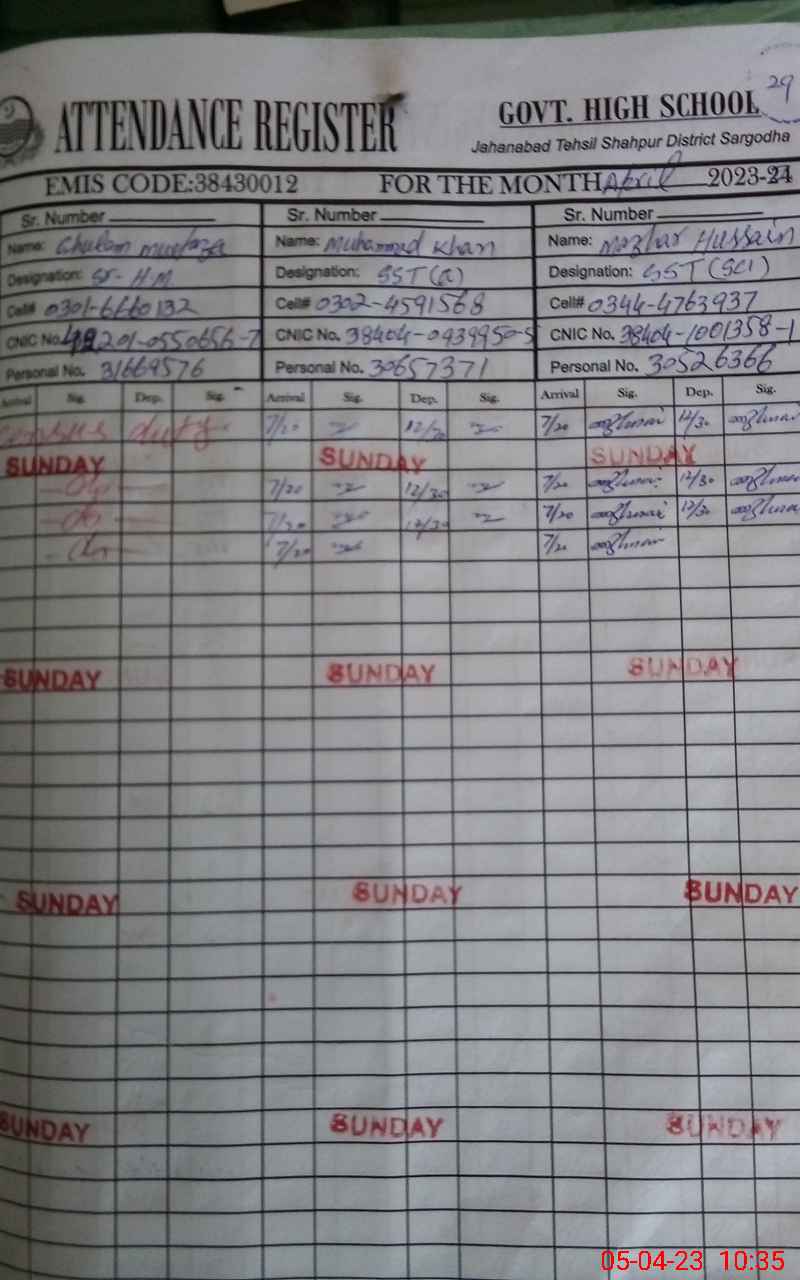 29
ATTENDANCE REGISTER GOVT. HIGH SCHOOL
Jahanabad Tehsil Shahpur District Sargodha
EMIS CODE:38430012 FOR THE MONTH April 2023-24
Sr. Number Sr. Number Sr. Number
Name: Ghulam Murtaza Name: Muhammad Khan Name: Mazhar Hussain
Designation: Sr. H.M Designation: SST(G) Designation: SST(SCI)
Cell# 0301-6660132 Cell# 0302-4591568 Cell# 0344-4763937
CNIC No. 38404-0939950-5 CNIC No. 38404-1001358-1
Personal No. 31669576 Personal No. 30657371 Personal No. 30526366
Arrival Sig. Dep. Sig. Arrival Sig. Dep. Sig. Arrival Sig. Dep. Sig.
Census duty 7/20 12/30 7/20 12/30
SUNDAY SUNDAY SUNDAY
7/20 12/30 7/20 12/30
7/20 12/30 7/20 12/30
7/20 7/20
SUNDAY SUNDAY SUNDAY
SUNDAY SUNDAY SUNDAY
SUNDAY SUNDAY SUNDAY
05-04-23 10:35